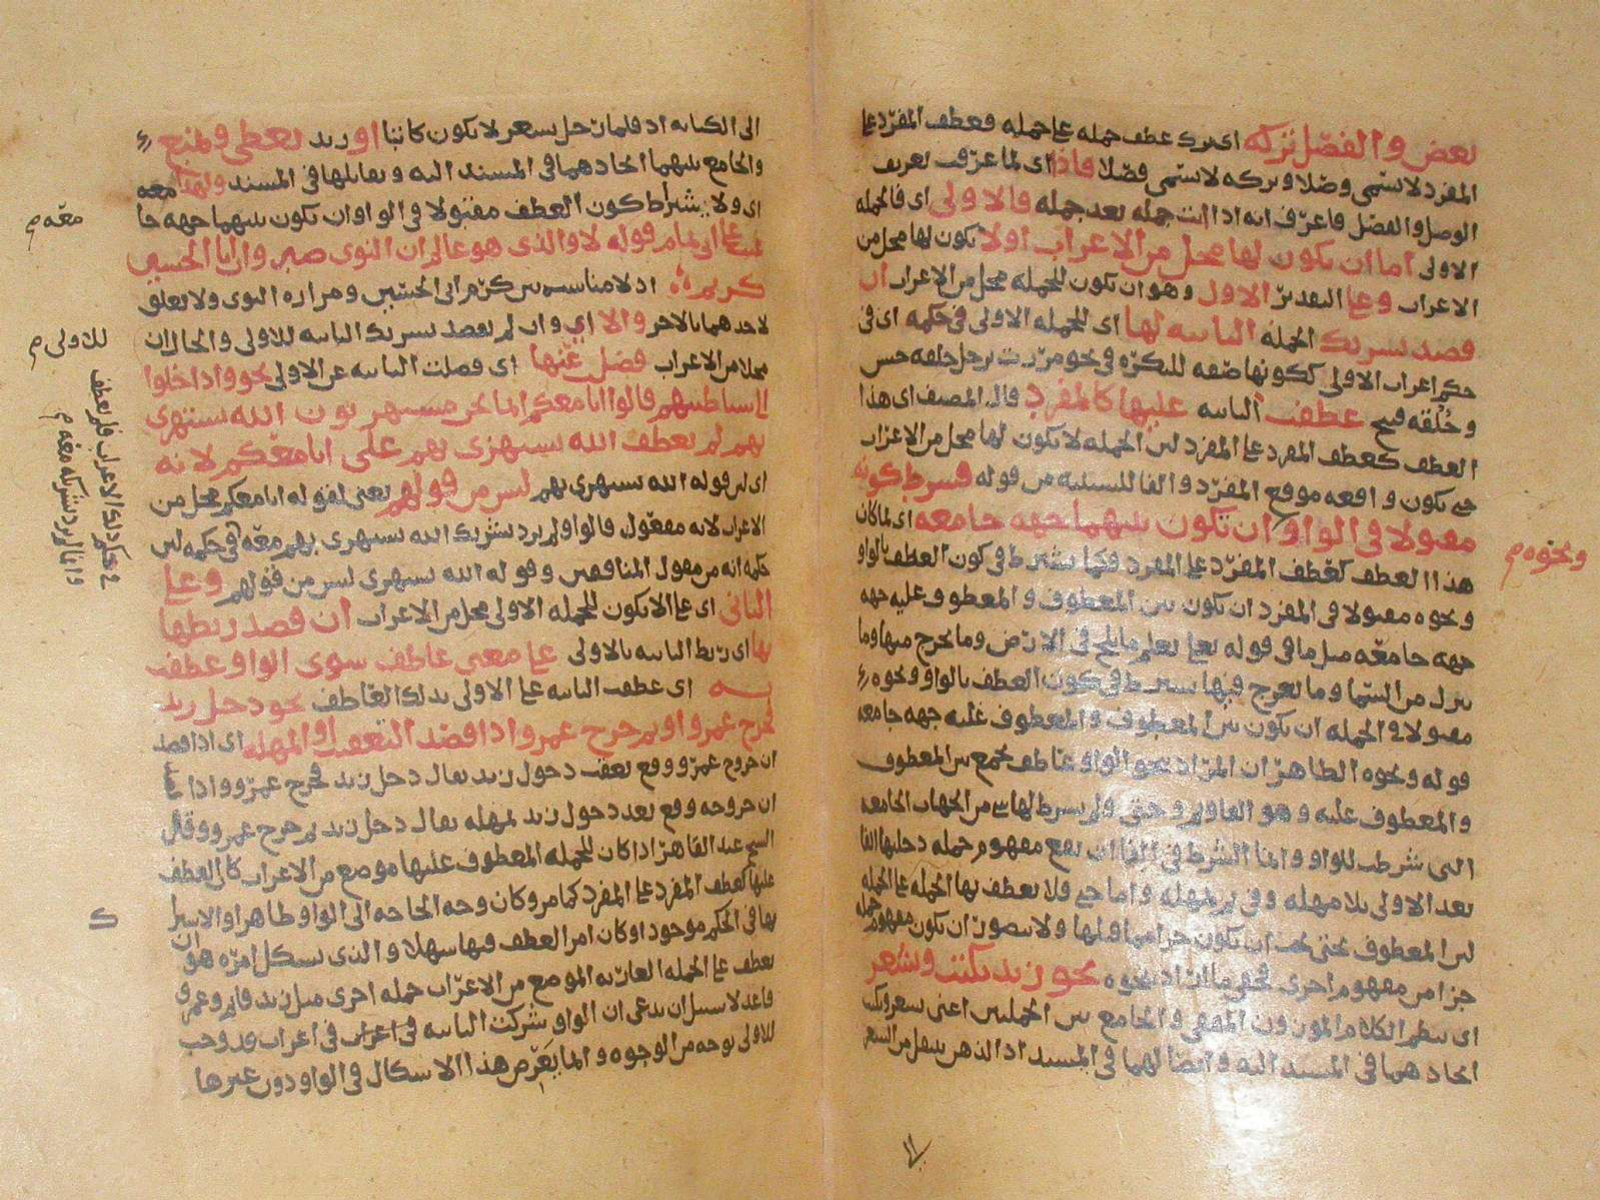 بعض والفصل تركه اى ترك عطف جمله على جمله فعطف المفرد على
المفرد لا يسمى وصلا وتركه لا يسمى فصلا فاذا اى لما عرف تعريف
الوصل والفصل فاعرف انه اذا اتت جمله بعد جمله فالاولى اى فالجمله
الاولى اما ان يكون لها محل من الاعراب اولا يكون لها محل من
الاعراب وعلى التقدير الاول وهو ان تكون للجمله محل من الاعراب ان
قصد تشريك الجمله الثانيه لها اى للجمله الاولى فى حكمه اى فى
حكم اعراب الاولى لكونها صفه للنكره فى نحو مررت برجل خلقه حسن
وخلقه قبيح عطفت الثانيه عليها كالمفرد قال المصنف اى هذا
العطف كعطف المفرد على المفرد لان الجمله لا يكون لها محل من الاعراب
حتى تكون واقعه موقع المفرد والفا للسببيه من قوله فشرط كونه
مقبولا فى الواو ان تكون بينهما جهه جامعه اى لما كان
ونحوه م
هذا العطف كعطف المفرد على المفرد فكما يشترط فى كون العطف بالواو
ونحوه مقبولا فى المفرد ان تكون بين المعطوف والمعطوف عليه جهه
جهه جامعه مثل ما فى قوله تعلى يعلم ما يلج فى الارض وما يخرج منها وما
ينزل من السما وما يعرج فيها يشترط فى كون العطف بالواو ونحوه
مقبولا فى الجمله ان تكون بين المعطوف والمعطوف عليه جهه جامعه
قوله ونحوه الظاهر ان المراد بنحو الواو عاطف يجمع بين المعطوف
والمعطوف عليه وهو الفا وثم وحتى ولم يشترط لها شى من الجهات الجامعه
التى شرطت للواو وانما الشرط فى الفا ان يقع مفهوم جمله دخلتها الفا
بعد الاولى بلا مهله وفى ثم بمهله واما حتى فلا يعطف بها الجمله على الجمله
لان المعطوف بحتى يجب ان يكون جزا مما قبلها ولا يتصور ان تكون مفهوم جمله
جزا من مفهوم اخرى نحو زيد يكتب ويشعر
اى ينظم الكلام الموزون المقفى والجامع بين الجملتين اعنى يشعر ويكتب
اتحادهما فى المسند اليه وايضا لهما فى المسند اذ الذهن ينتقل من الشعر
الى الكتابه اذ قلما رجل يشعر لا يكون كاتبا او زيد يعطى ويمنع
والجامع بينهما اتحادهما فى المسند اليه وتقابلها فى المسند ولهذا
معه م
اى ولا يشترط كون العطف مقبولا فى الواو ان تكون بينهما جهه جا
معه عيب على ابى تمام قوله لا والذى هو عالم ان النوى صبر وان ابا الحسين
كريم اذ لا مناسبه بين كرم ابى الحسين ومراره النوى ولا تعلق
لاحدهما بالاخر والا اى وان لم يقصد تشريك الثانيه للاولى والحال ان
للاولى م
محلا من الاعراب فصل عنها اى فصلت الثانيه عن الاولى نحو واذا خلوا
الى شياطينهم قالوا انا معكم انما نحن مستهزون الله يستهزى
بهم لم يعطف الله يستهزى بهم على انا معكم لانه
اى لان قوله الله يستهزى بهم ليس من قولهم يعنى لقوله انا معكم محل من
الاعراب لانه مفعول قالوا ولم يرد تشريك الله يستهزى بهم معه فى حكمه لان
حكمه انه من مقول المنافقين وقوله الله يستهزى ليس من قولهم وعلى
الثانى اى على الا يكون للجمله الاولى محل من الاعراب ان قصد ربطها
بها اى ربط الثانيه بالاولى على معنى عاطف سوى الواو عطفت
به اى عطف الثانيه على الاولى بذلك العاطف نحو دخل زيد
فخرج عمرو او ثم خرج عمرو اذا قصد التعقيب او المهله اى اذا قصد
ان خروج عمرو وقع بعقب دخول زيد يقال دخل زيد فخرج عمرو واذا
ان خروجه وقع بعد دخول زيد بمهله يقال دخل زيد ثم خرج عمرو وقال
الشيخ عبد القاهر اذا كان للجمله المعطوف عليها موضع من الاعراب كان العطف
عليها كعطف المفرد على المفرد كما مر وكان وجه الحاجه الى الواو ظاهرا والاشراك
بها فى الحكم موجودا وكان امر العطف فيها سهلا والذى يشكل امره هو ان
يعطف على الجمله العاريه الموضع من الاعراب جمله اخرى مثل زيد قايم وعمرو
قاعد لا سبيل ان يدعى ان الواو شركت الثانيه فى اعراب قد وجب
للاولى بوجه من الوجوه وانما يعرض هذا الاشكال فى الواو دون غيرها